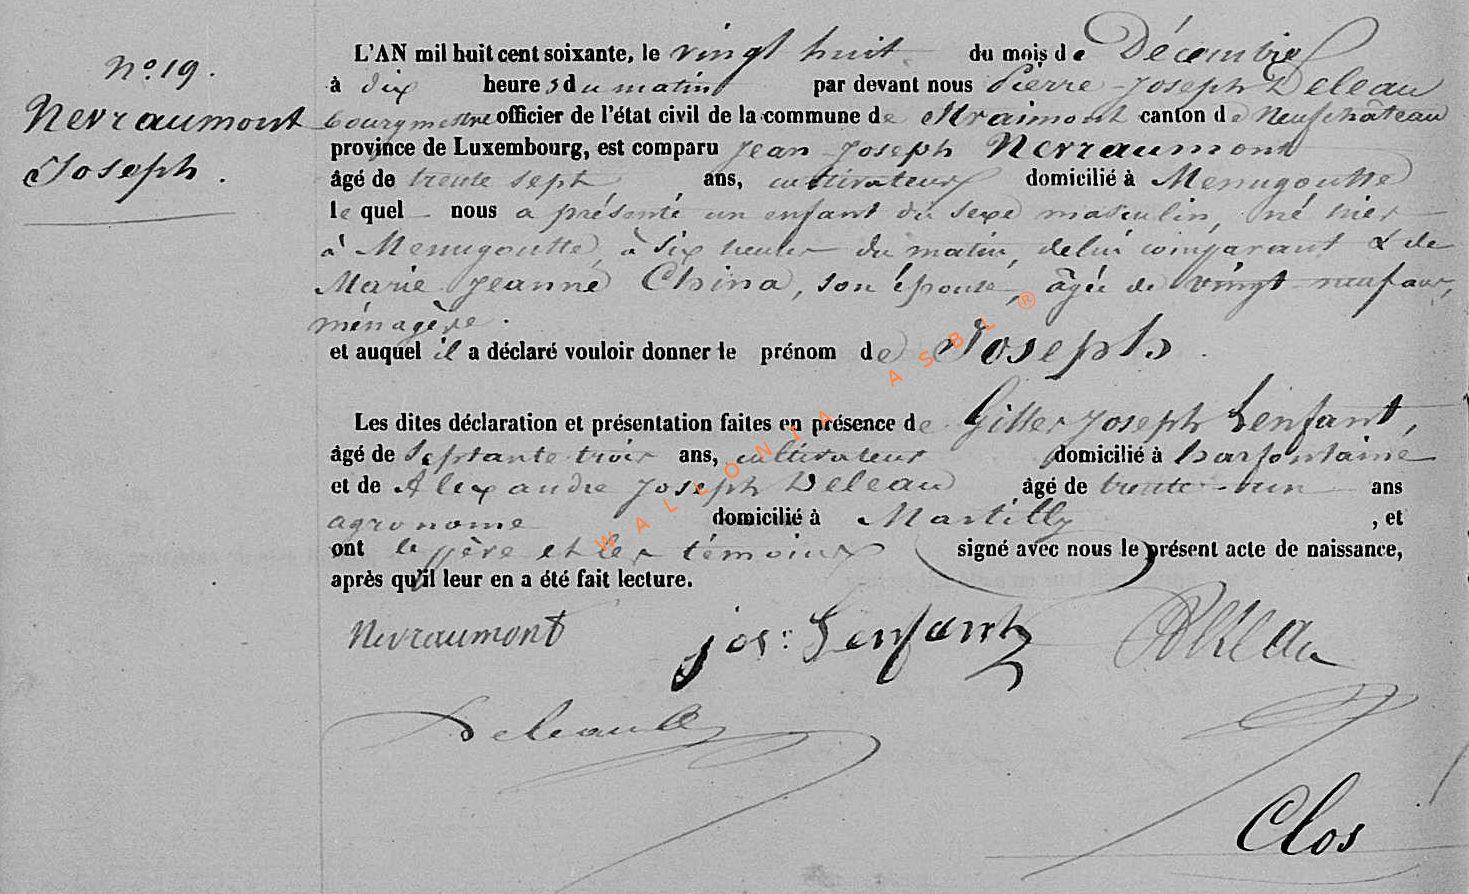 N.º 19.
Nevraumont
Joseph.
L'AN mil huit cent soixante, le vingt huit du mois de Décembre
à dix heures du matin par devant nous Pierre-Joseph Deleau
bourgmestre officier de l'état civil de la commune de Straimont canton de Neufchâteau
province de Luxembourg, est comparu Jean-Joseph Nevraumont
âgé de trente sept, ans, cultivateur domicilié à Menugoutte
lequel nous a présenté un enfant du sexe masculin, né hier
à Menugoutte, à six heures du matin, de lui comparant & de
Marie Jeanne China, son épouse, âgée de vingt-neuf ans,
ménagère.
et auquel il a déclaré vouloir donner le prénom de Joseph.
Les dites déclaration et présentation faites en présence de Gilles Joseph Lenfant,
âgé de septante-trois ans, cultivateur domicilié à Harfontaine
et de Alexandre Joseph Deleau âgé de trente-un ans
agronome domicilié à Martilly, et
ont le père et les témoins signé avec nous le présent acte de naissance,
après qu'il leur en a été fait lecture.
WALLONIA ASBL ®
Nevraumont jos: Lenfant
Deleau
Clos